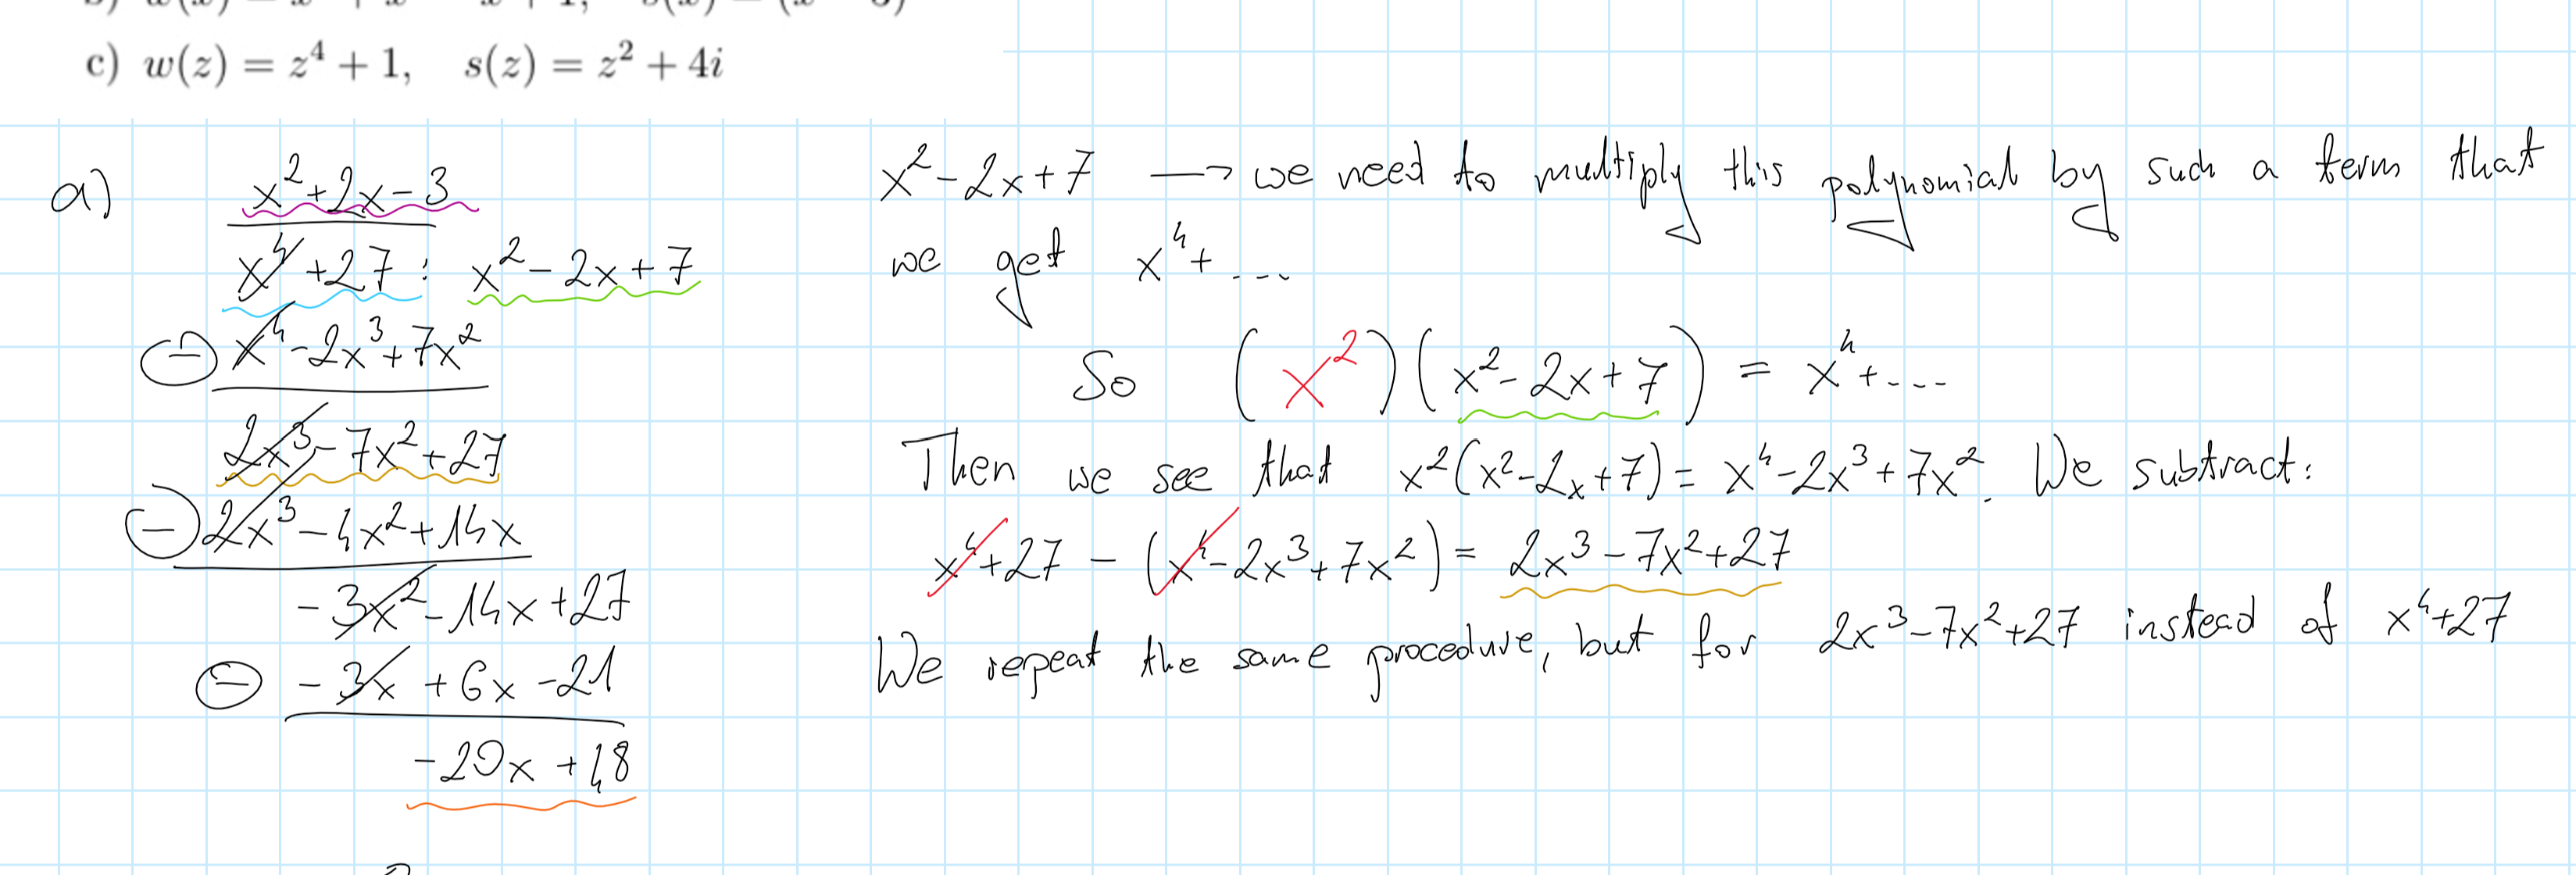 c) w(z) = z⁴ + 1,   s(z) = z² + 4i
a)
x²+2x-3
x⁴+27 : x²-2x+7
⊖ x⁴-2x³+7x²
2x³-7x²+27
⊖ 2x³-4x²+14x
-3x²-14x+27
⊖ -3x +6x -21
-20x +48
x²-2x+7 → we need to multiply this polynomial by such a term that
we get x⁴+...
So (x²)(x²-2x+7) = x⁴+...
Then we see that x²(x²-2x+7) = x⁴-2x³+7x². We subtract:
x⁴+27 - (x⁴-2x³+7x²) = 2x³-7x²+27
We repeat the same procedure, but for 2x³-7x²+27 instead of x⁴+27